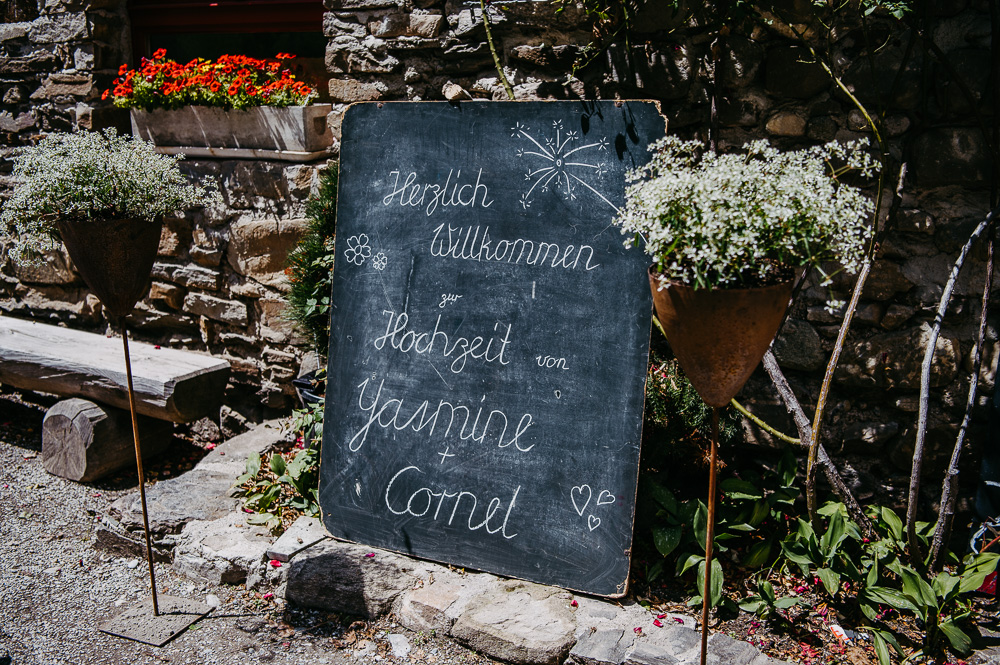 Herzlich
Willkommen
zur
Hochzeit von
Yasmine
+
Cornel